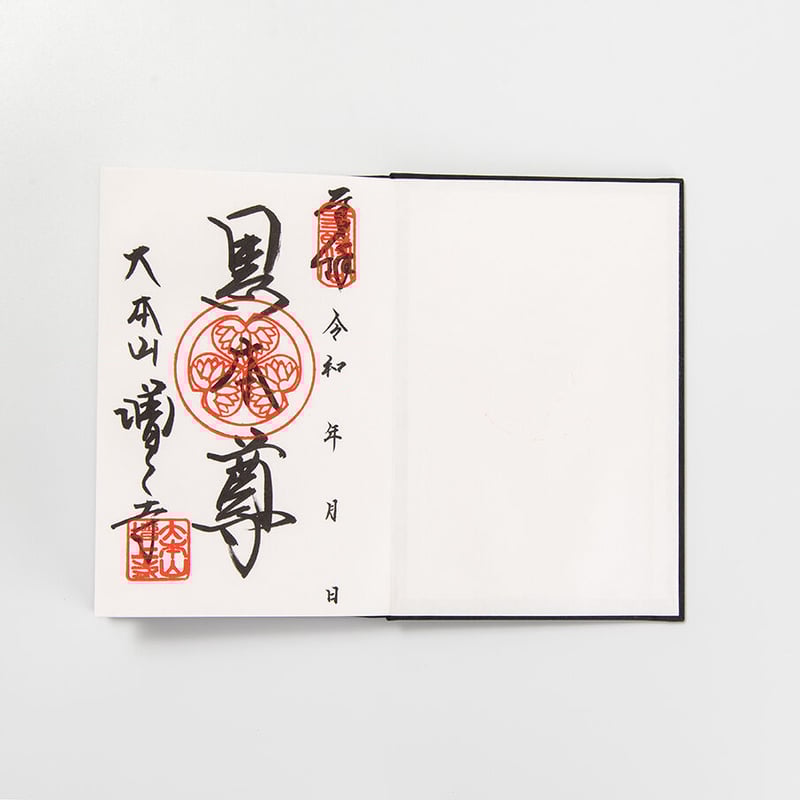 令和 年 月 日
黒本尊
大本山増上寺
大本山
増上寺